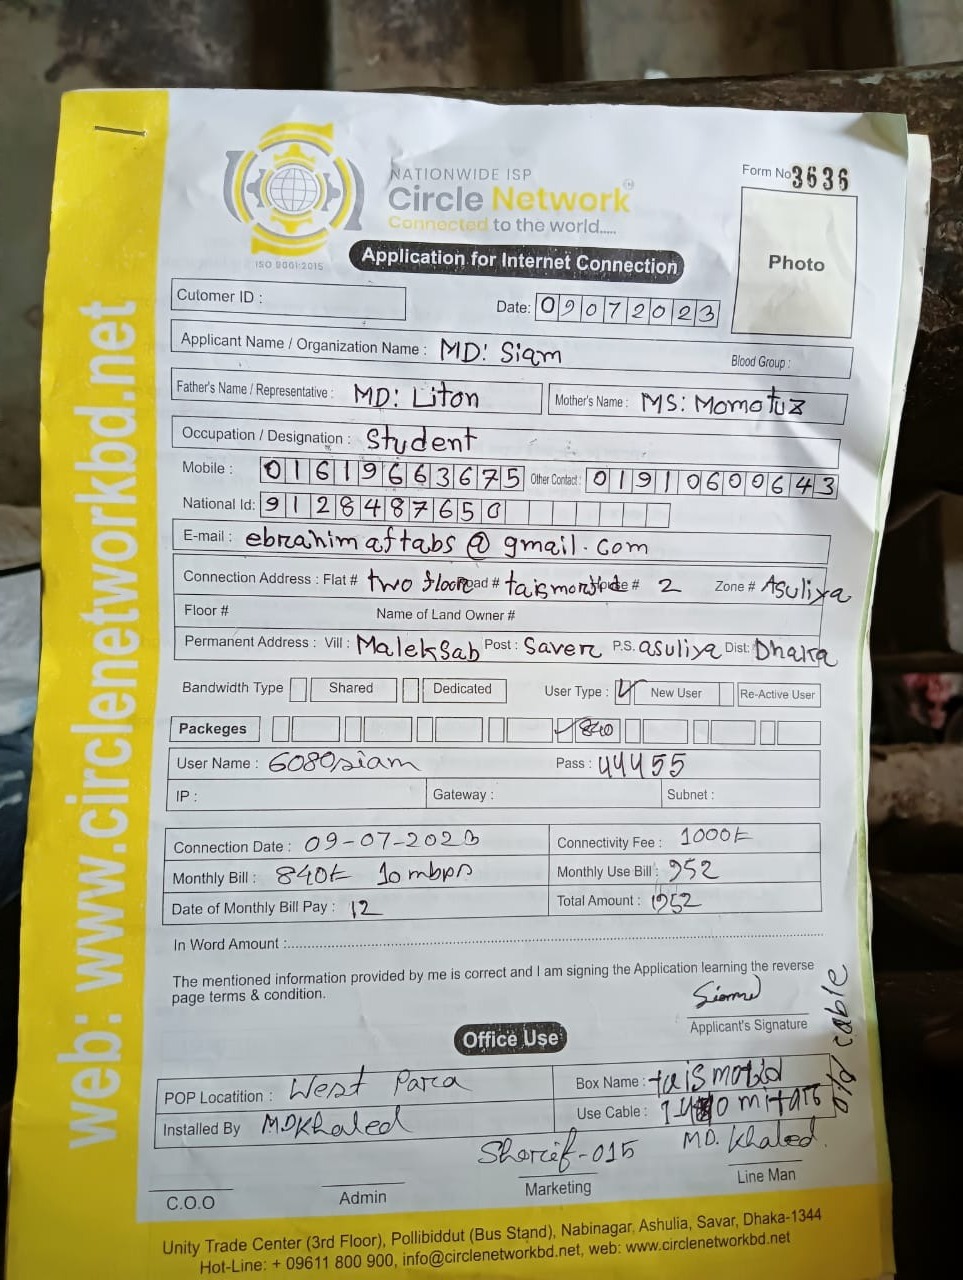 web: www.circlenetworkbd.net
NATIONWIDE ISP
Circle Network
Connected to the world.....
ISO 9001:2015
Form No 3636
Photo
Application for Internet Connection
Cutomer ID :
Date: 09072023
Applicant Name / Organization Name : MD: Siam Blood Group :
Father's Name / Representative : MD: Liton Mother's Name : MS: Momotuz
Occupation / Designation : Student
Mobile : 01619663675 Other Contact : 01910600643
National Id: 9128487650
E-mail : ebrahimaftabs@gmail.com
Connection Address : Flat # two floor Road # House # 2 Zone # Asuliya
Floor # Name of Land Owner #
Permanent Address : Vill : Maleksab Post : Saver P.S. asuliya Dist: Dhaka
Bandwidth Type Shared Dedicated User Type : New User Re-Active User
Packeges 840
User Name : 6080siam Pass : 44455
IP : Gateway : Subnet :
Connection Date : 09-07-2023 Connectivity Fee : 1000৳
Monthly Bill : 840৳ 10 mbps Monthly Use Bill : 952
Date of Monthly Bill Pay : 12 Total Amount : 1952
In Word Amount :
The mentioned information provided by me is correct and I am signing the Application learning the reverse
page terms & condition.
Applicant's Signature
Office Use
POP Locatition : West Para Box Name :
Installed By MD Khaled Use Cable :
old cable
Sharif-015 MD. Khaled.
C.O.O Admin Marketing Line Man
Unity Trade Center (3rd Floor), Pollibiddut (Bus Stand), Nabinagar, Ashulia, Savar, Dhaka-1344
Hot-Line: + 09611 800 900, info@circlenetworkbd.net, web: www.circlenetworkbd.net